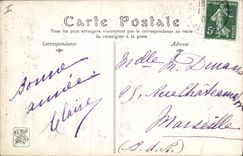 Carte Postale
Tous les pays étrangers n'acceptent pas la correspondance au recto
(Se renseigner à la Poste)
Correspondance
Adresse
Bonne
année.
Claire
Mdlle M.
Rue
Marseille
(B.d.R)
5